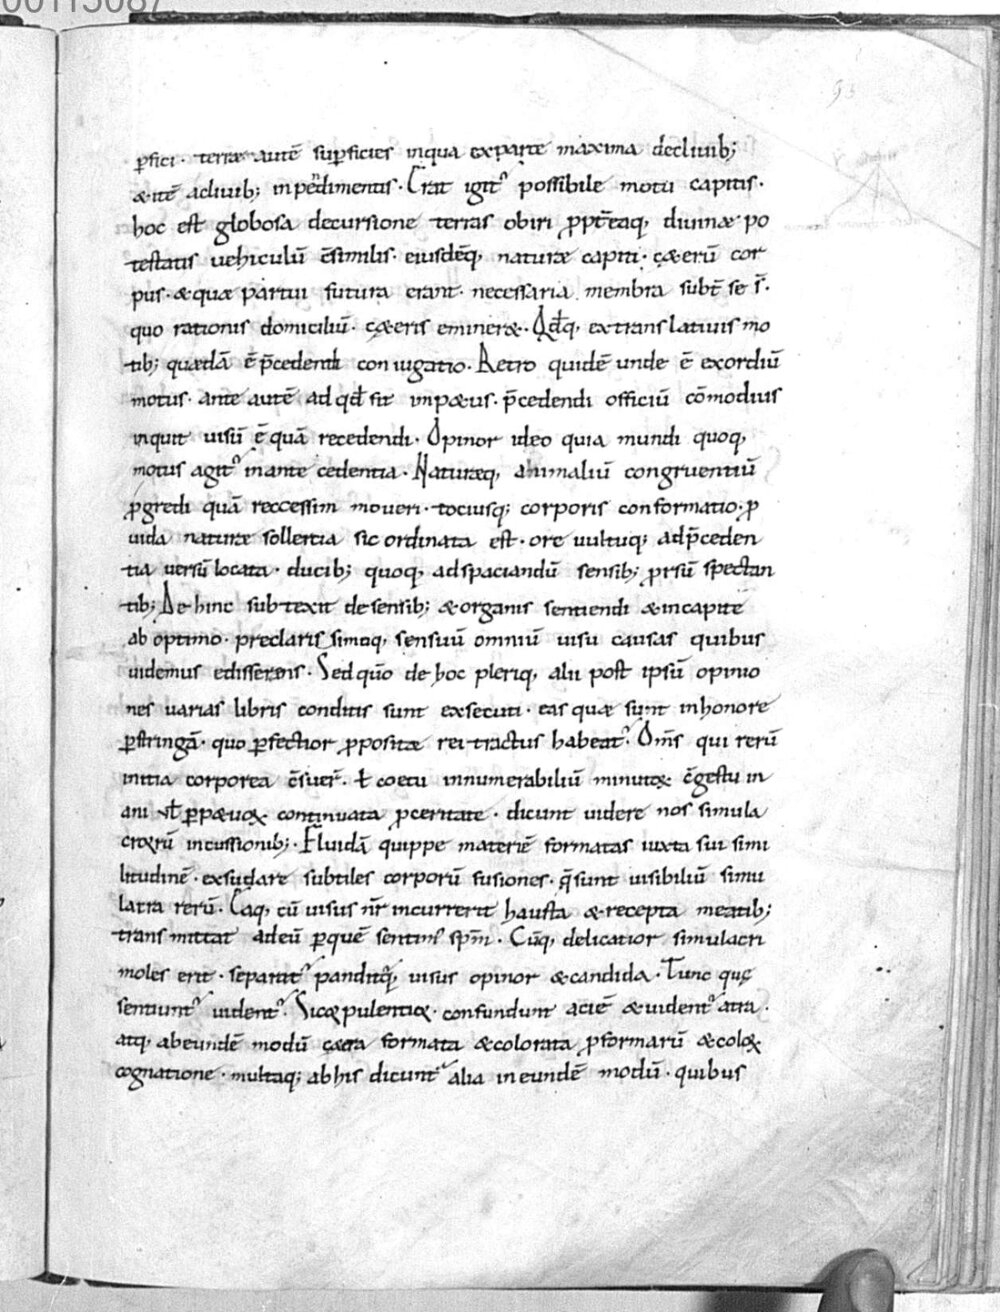 00113087
95
ꝑfici · terrae autē suꝑficies inqua exparte maxima decliuib;
&itē acliuib; inpedimentis · Erat igit᷒ possibile motu capitis ·
hoc est globosa decursione terras obiri ꝓpt̄eaq, diuinae po
testatis uehiculū c̄similis · eiusdēq, naturae capiti · c&erū cor
pus · &quae partui futura erant · necessaria membra subt̄ se r̄ ·
quo rationis domiciliū · c&eris eminer& · Adq, extranslatiuis mo
tib; quaedā ē p̄cedendi coniugatio · Retro quidē unde ē exordiū
motus · ante autē ad qđ fit imp&us · p̄cedendi officiū cōmodius
inquit uisū ē quā recedendi · Opinor ideo quia mundi quoq,
motus agit᷒ inante cedentia · Naturaeq, animaliū congruentiū
ꝓgredi quā reccessim moueri · tociusq; corporis conformatio · ꝓ
uida naturae sollertia sic ordinata est · ore uultuq; adp̄ceden
tia uersū locata · ducib; quoq, adspaciandū sensib; ꝓrsū spectan
tib; Dehinc subtexit desensib; &organis sentiendi &incapite
ab optimo · preclarissimoq, sensuū omniū uisu causas quibus
uidemus edisserens · Sed quō de hoc pleriq, alii post ipsū opinio
nes uarias libris conditis sunt exsecuti · eas quae sunt inhonore
ꝑstringā · quo ꝑfectior ꝓpositae rei tractus habeat᷒ · Om̄s qui rerū
initia corporea c̄suer̄ · ł coetu innumerabiliū minutoꝝ c̄gestu in
ani ꝉ ꝑp&uoꝝ continuata ꝓceritate · dicunt uidere nos simula
croꝝrū incussionib; · Fluidā quippe materiē formatas iuxta sui simi
litudinē · exsudare subtiles corporū fusiones · q̄sunt uisibiliū simu
lacra rerū · Eaq, cū uisus nr̄ incurrerit hausta &recepta meatib;
transmittat adeū ꝑquē sentim᷒ spm̄ · Cūq, delicatior simulacri
moles erit · separat᷒ panditq᷒, uisus opinor &candida · Tunc quę
sentiunt᷒ uident᷒ · Sicoꝝpulentioꝝ · confundunt aciē &uident᷒ atra ·
atq, abeundē modū c&era formata &colorata ꝓformarū &coloꝝ
cognatione · multaq; abhis dicunt᷒ alia ineundē modū · quibus